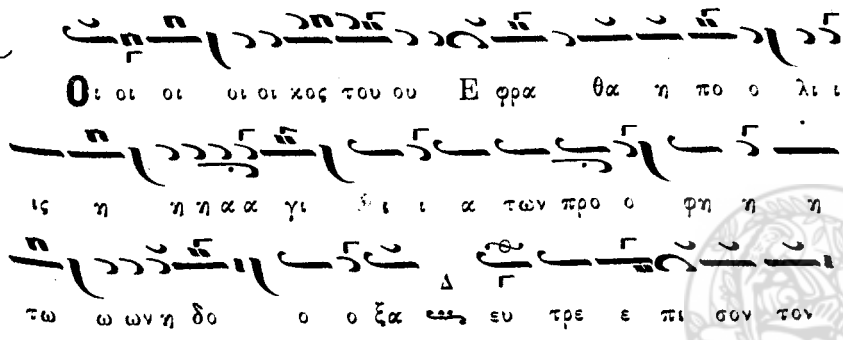 Οι οι οι οι οι κος του ου Ε φρα θα η πο ο λι ι
ις η η η α α γι ι ι α των προ ο φη η η
τω ω ων η δο ο ο ξα Δ ευ τρε ε πι σον τον